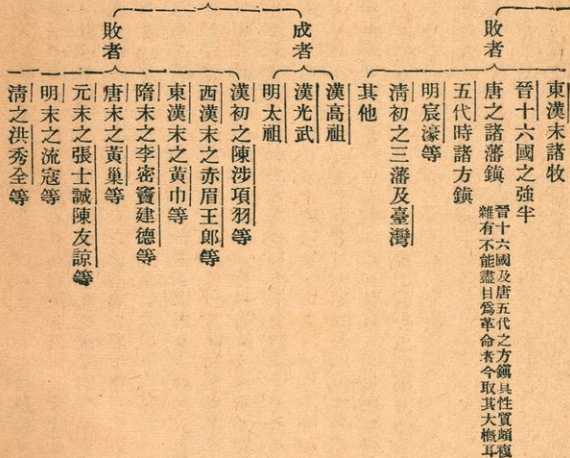 敗者
東漢末諸牧
晉十六國之強半
唐之諸藩鎮
晉十六國及唐五代之方鎭具性質頗複
雜有不能盡目爲革命者今取其大槪耳
五代時諸方鎮
明宸濠等
淸初之三藩及臺灣
其他
成者
漢高祖
漢光武
明太祖
敗者
漢初之陳涉項羽等
西漢末之赤眉王郞等
東漢末之黃巾等
隋末之李密竇建德等
唐末之黃巢等
元末之張士誠陳友諒等
明末之流寇等
淸之洪秀全等